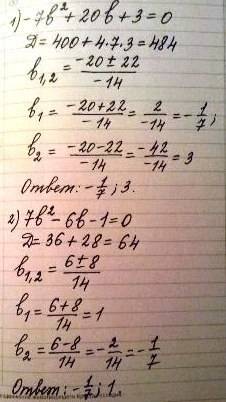 1) -7b² + 20b + 3 = 0
D = 400 + 4·7·3 = 484
b₁,₂ = (-20 ± 22)/(-14)
b₁ = (-20+22)/(-14) = 2/(-14) = -1/7;
b₂ = (-20-22)/(-14) = (-42)/(-14) = 3
Ответ: -1/7; 3.
2) 7b² - 6b - 1 = 0
D = 36 + 28 = 64
b₁,₂ = (6 ± 8)/14
b₁ = (6+8)/14 = 1
b₂ = (6-8)/14 = -2/14 = -1/7
Ответ: -1/7; 1